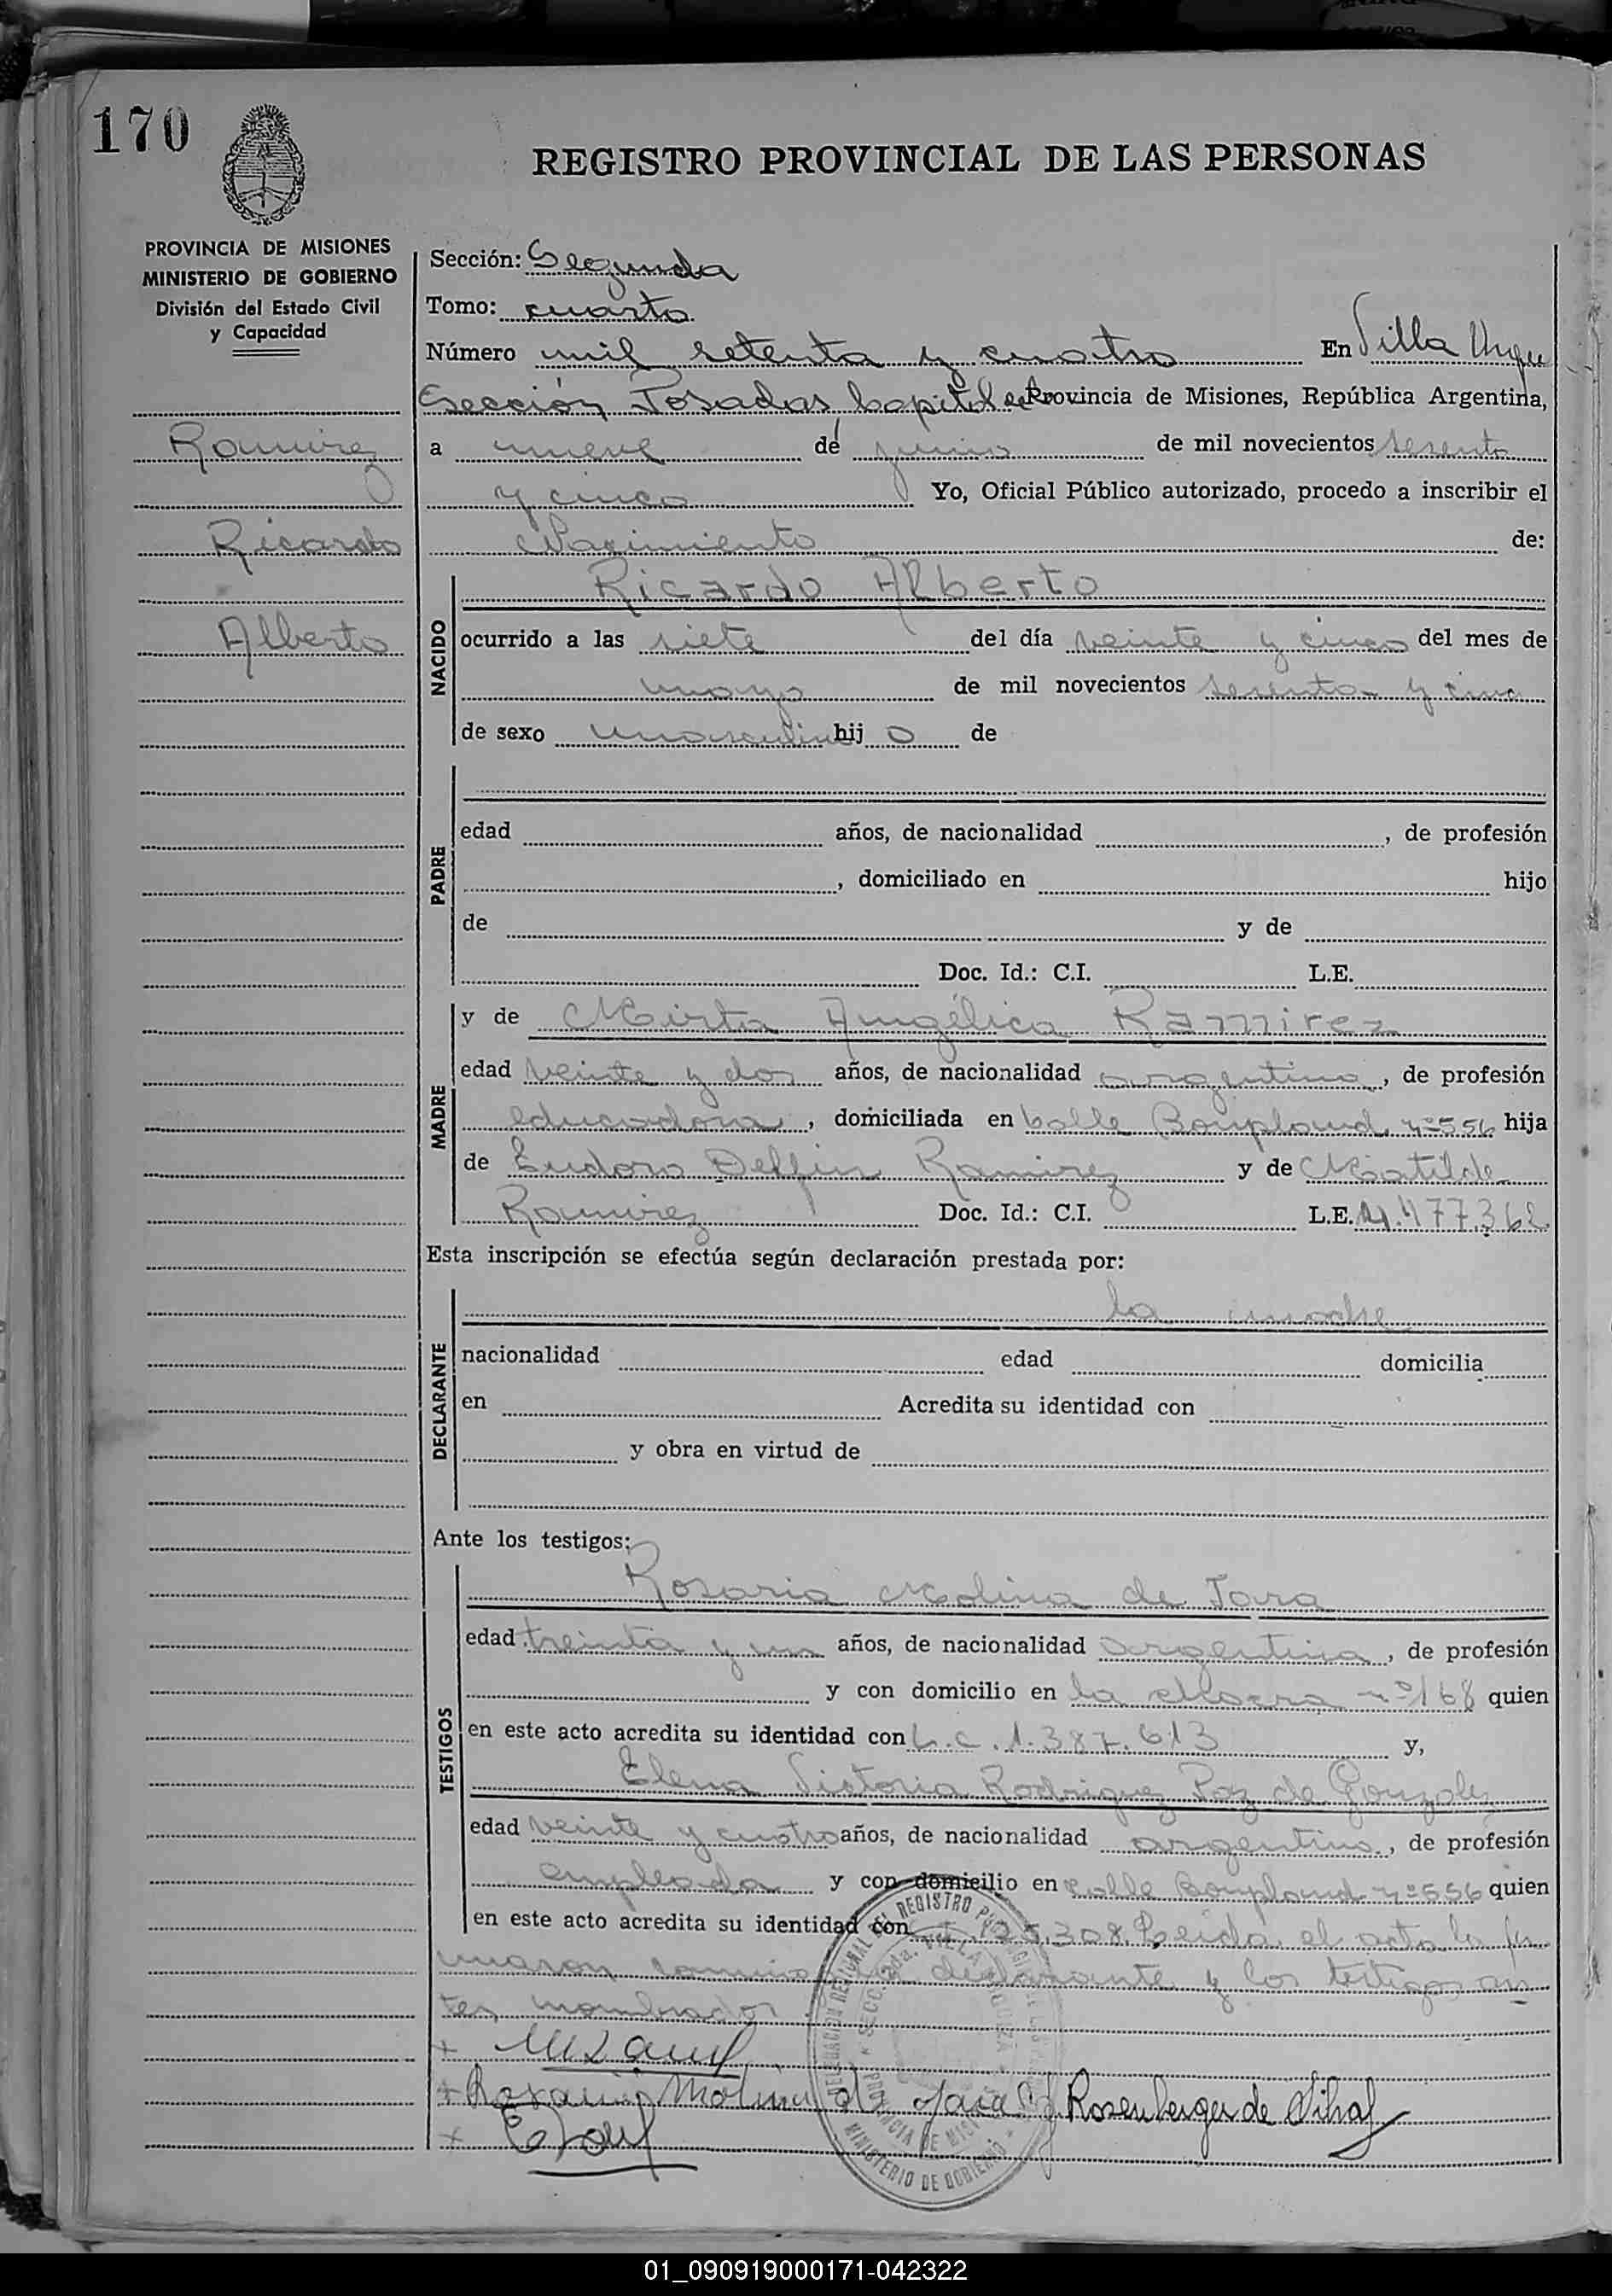 170
REGISTRO PROVINCIAL DE LAS PERSONAS
PROVINCIA DE MISIONES
MINISTERIO DE GOBIERNO
División del Estado Civil
y Capacidad
Sección: Segunda
Tomo: cuarto
Número mil setenta y cuatro En Villa Urqui
Sección Posadas Capital de Provincia de Misiones, República Argentina,
Ramirez
Ricardo
Alberto
a nueve de junio de mil novecientos sesenta
y cinco Yo, Oficial Público autorizado, procedo a inscribir el
Nacimiento de:
NACIDO
Ricardo Alberto
ocurrido a las siete del día veinte y cinco del mes de
mayo de mil novecientos sesenta y cinco
de sexo masculino hijo de
PADRE
edad años, de nacionalidad , de profesión
, domiciliado en hijo
de y de
Doc. Id.: C.I. L.E.
MADRE
y de Mirta Angélica Ramirez
edad veinte y dos años, de nacionalidad argentina, de profesión
educadora, domiciliada en Calle Bonpland nº 556 hija
de Eudoro Delfin Ramirez y de Matilde
Ramirez Doc. Id.: C.I. L.E. 4.477.362
Esta inscripción se efectúa según declaración prestada por:
DECLARANTE
la madre
nacionalidad edad domicilia
en Acredita su identidad con
y obra en virtud de
Ante los testigos:
TESTIGOS
Rosaria Molina de Jara
edad treinta y un años, de nacionalidad argentina, de profesión
y con domicilio en la nº 168 quien
en este acto acredita su identidad con L.C. 1.387.613 y,
Elena Victoria Rodriguez Paz de Gonzalez
edad veinte y cuatro años, de nacionalidad argentina, de profesión
empleada y con domicilio en calle Bonpland nº 556 quien
en este acto acredita su identidad con 125.308. Leida el acta la fir
maron conmigo la declarante y los testigos an
tes nombrados
Rosaria Molina de Jara Rosenberger de
DELEGACION REGIONAL DEL REGISTRO
SECC. 2da. VILLA URQUIZA
PROVINCIA DE MISIONES
MINISTERIO DE GOBIERNO
01_090919000171-042322